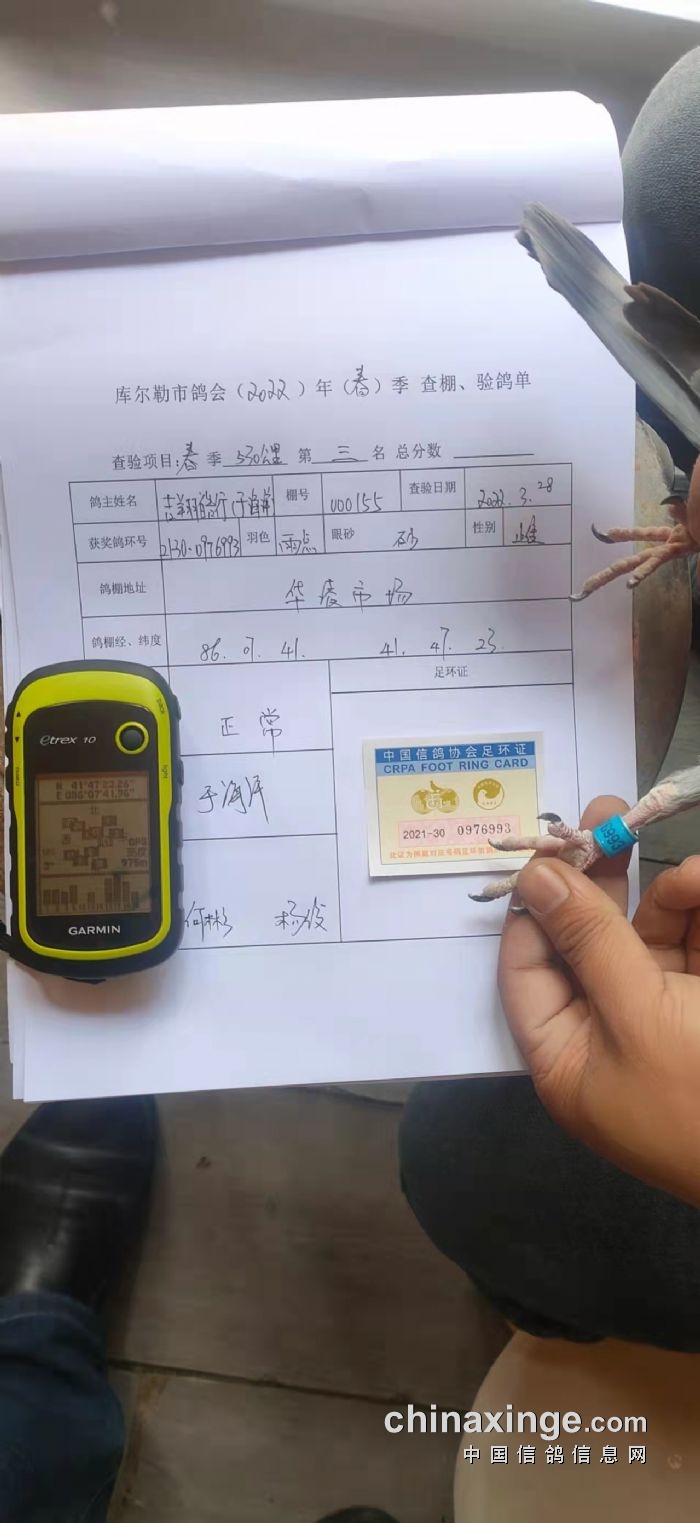 库尔勒市鸽会(2022)年(春)季 查棚、验鸽单
查验项目:春 季 530公里 第 三 名 总分数
鸽主姓名 棚号 000155 查验日期 2022.3.28
获奖鸽环号 2130-0976993 羽色 雨点 眼砂 砂 性别 雄
鸽棚地址 华凌市场
鸽棚经、纬度 86. 07. 41. 41. 47. 23.
足环证
正常
于海洋
何彬 杨俊
中国信鸽协会足环证
CRPA FOOT RING CARD
2021-30 0976993
etrex 10
N 41°47'23.26"
E 086°07'41.96"
北
GPS
高度
975m
GARMIN
chinaxinge.com
中国信鸽信息网